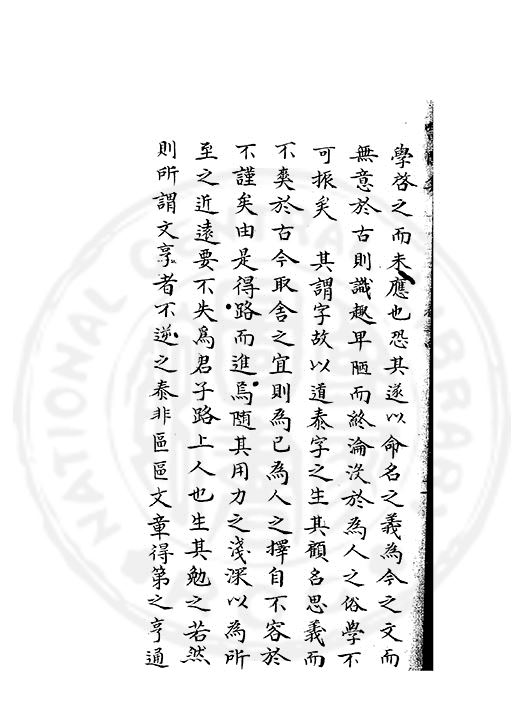 學啓之而未應也恐其遂以命名之義為今之文而
無意於古則識趣早陋而終淪没於為人之俗學不
可振矣　其謂字故以道泰字之生其顧名思義而
不爽於古今取舍之宜則為已為人之擇自不容於
不謹矣由是得路而進焉隨其用力之淺深以為所
至之近遠要不失爲君子路上人也生其勉之若然
則所謂文享者不逆之泰非區區文章得第之亨通